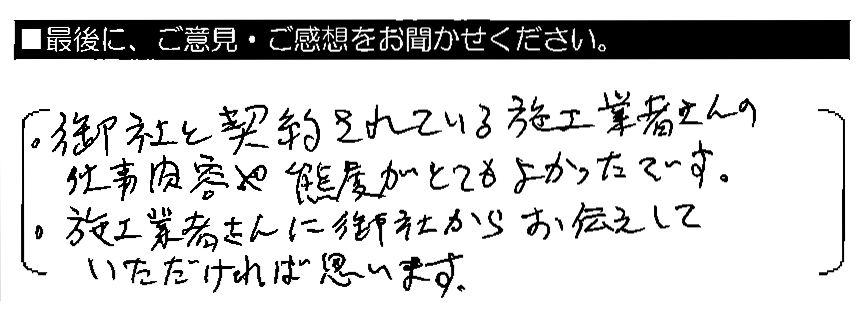 ■最後に、ご意見・ご感想をお聞かせください。
。御社と契約されている施工業者さんの
仕事内容や態度がとてもよかったです。
。施工業者さんに御社からお伝えして
いただければ思います。